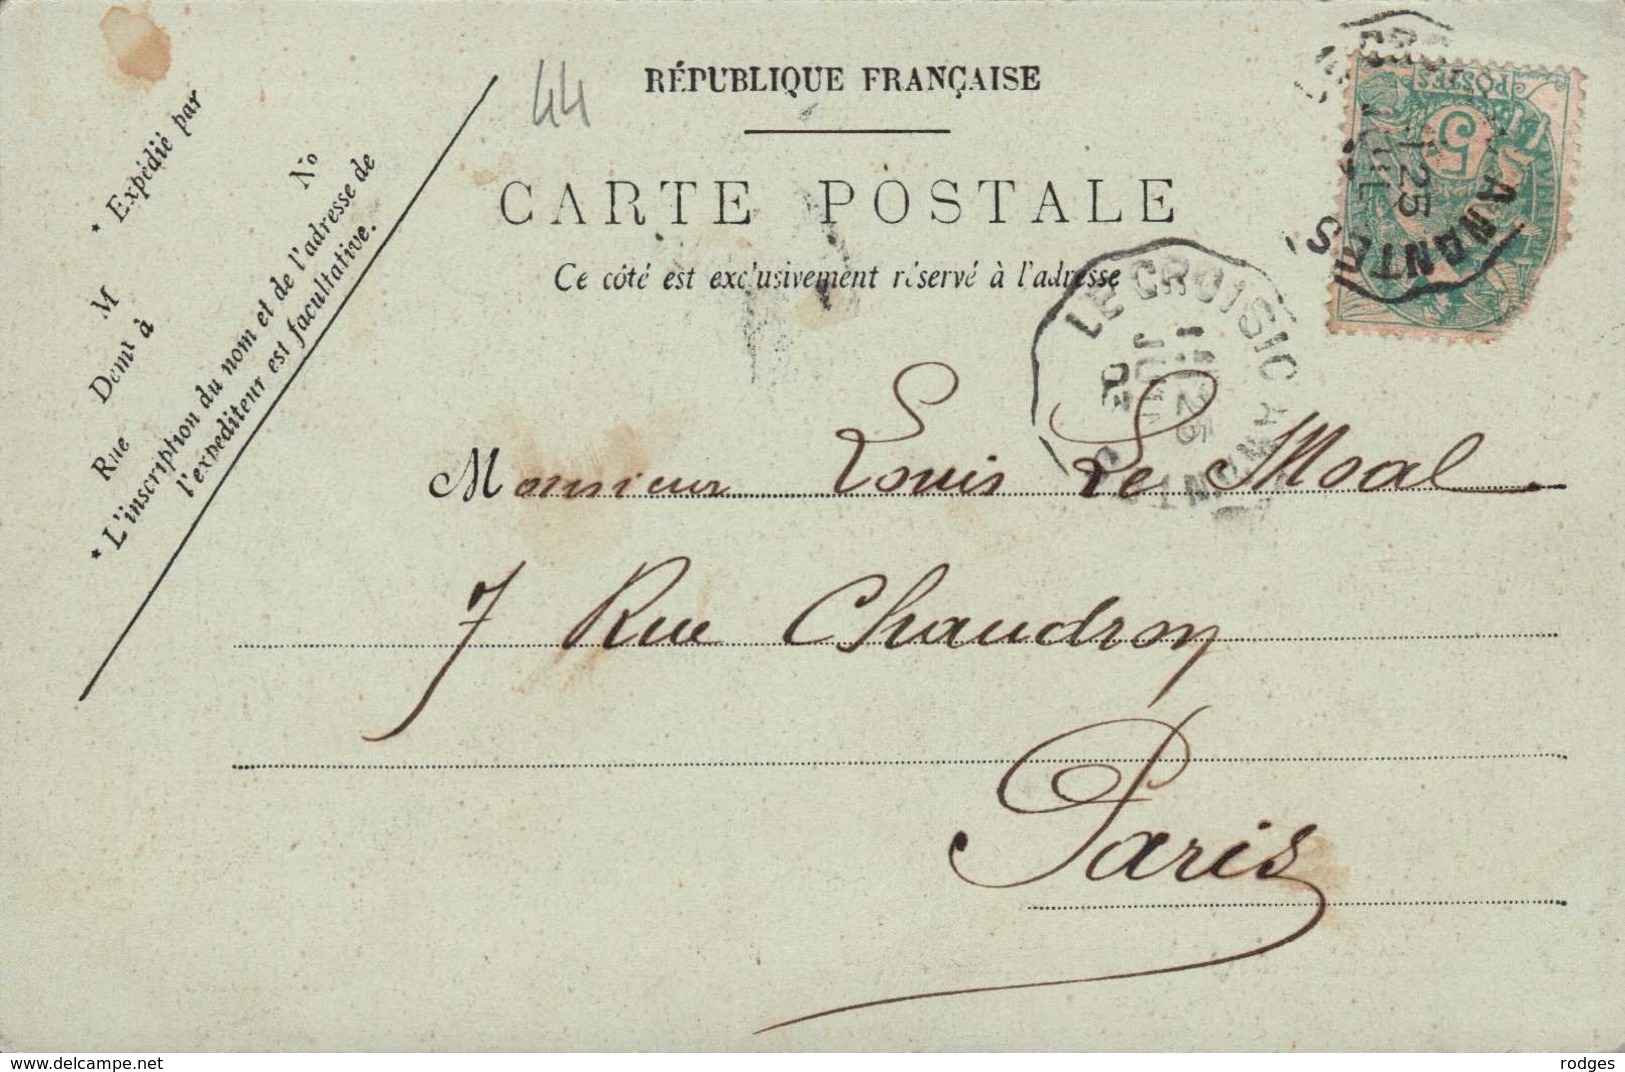 RÉPUBLIQUE FRANÇAISE
44
CARTE POSTALE
Ce côté est exclusivement réservé à l'adresse
* Expédié par
M
Demt à
Rue
No
* L'inscription du nom et de l'adresse de
l'expéditeur est facultative.
POSTES
5
25
JUIL
A NANTES
LE CROISIC A NANTES
25
JUIL
Monsieur Louis Le Moal
7 Rue Chaudron
Paris
delcampe.net
rodges